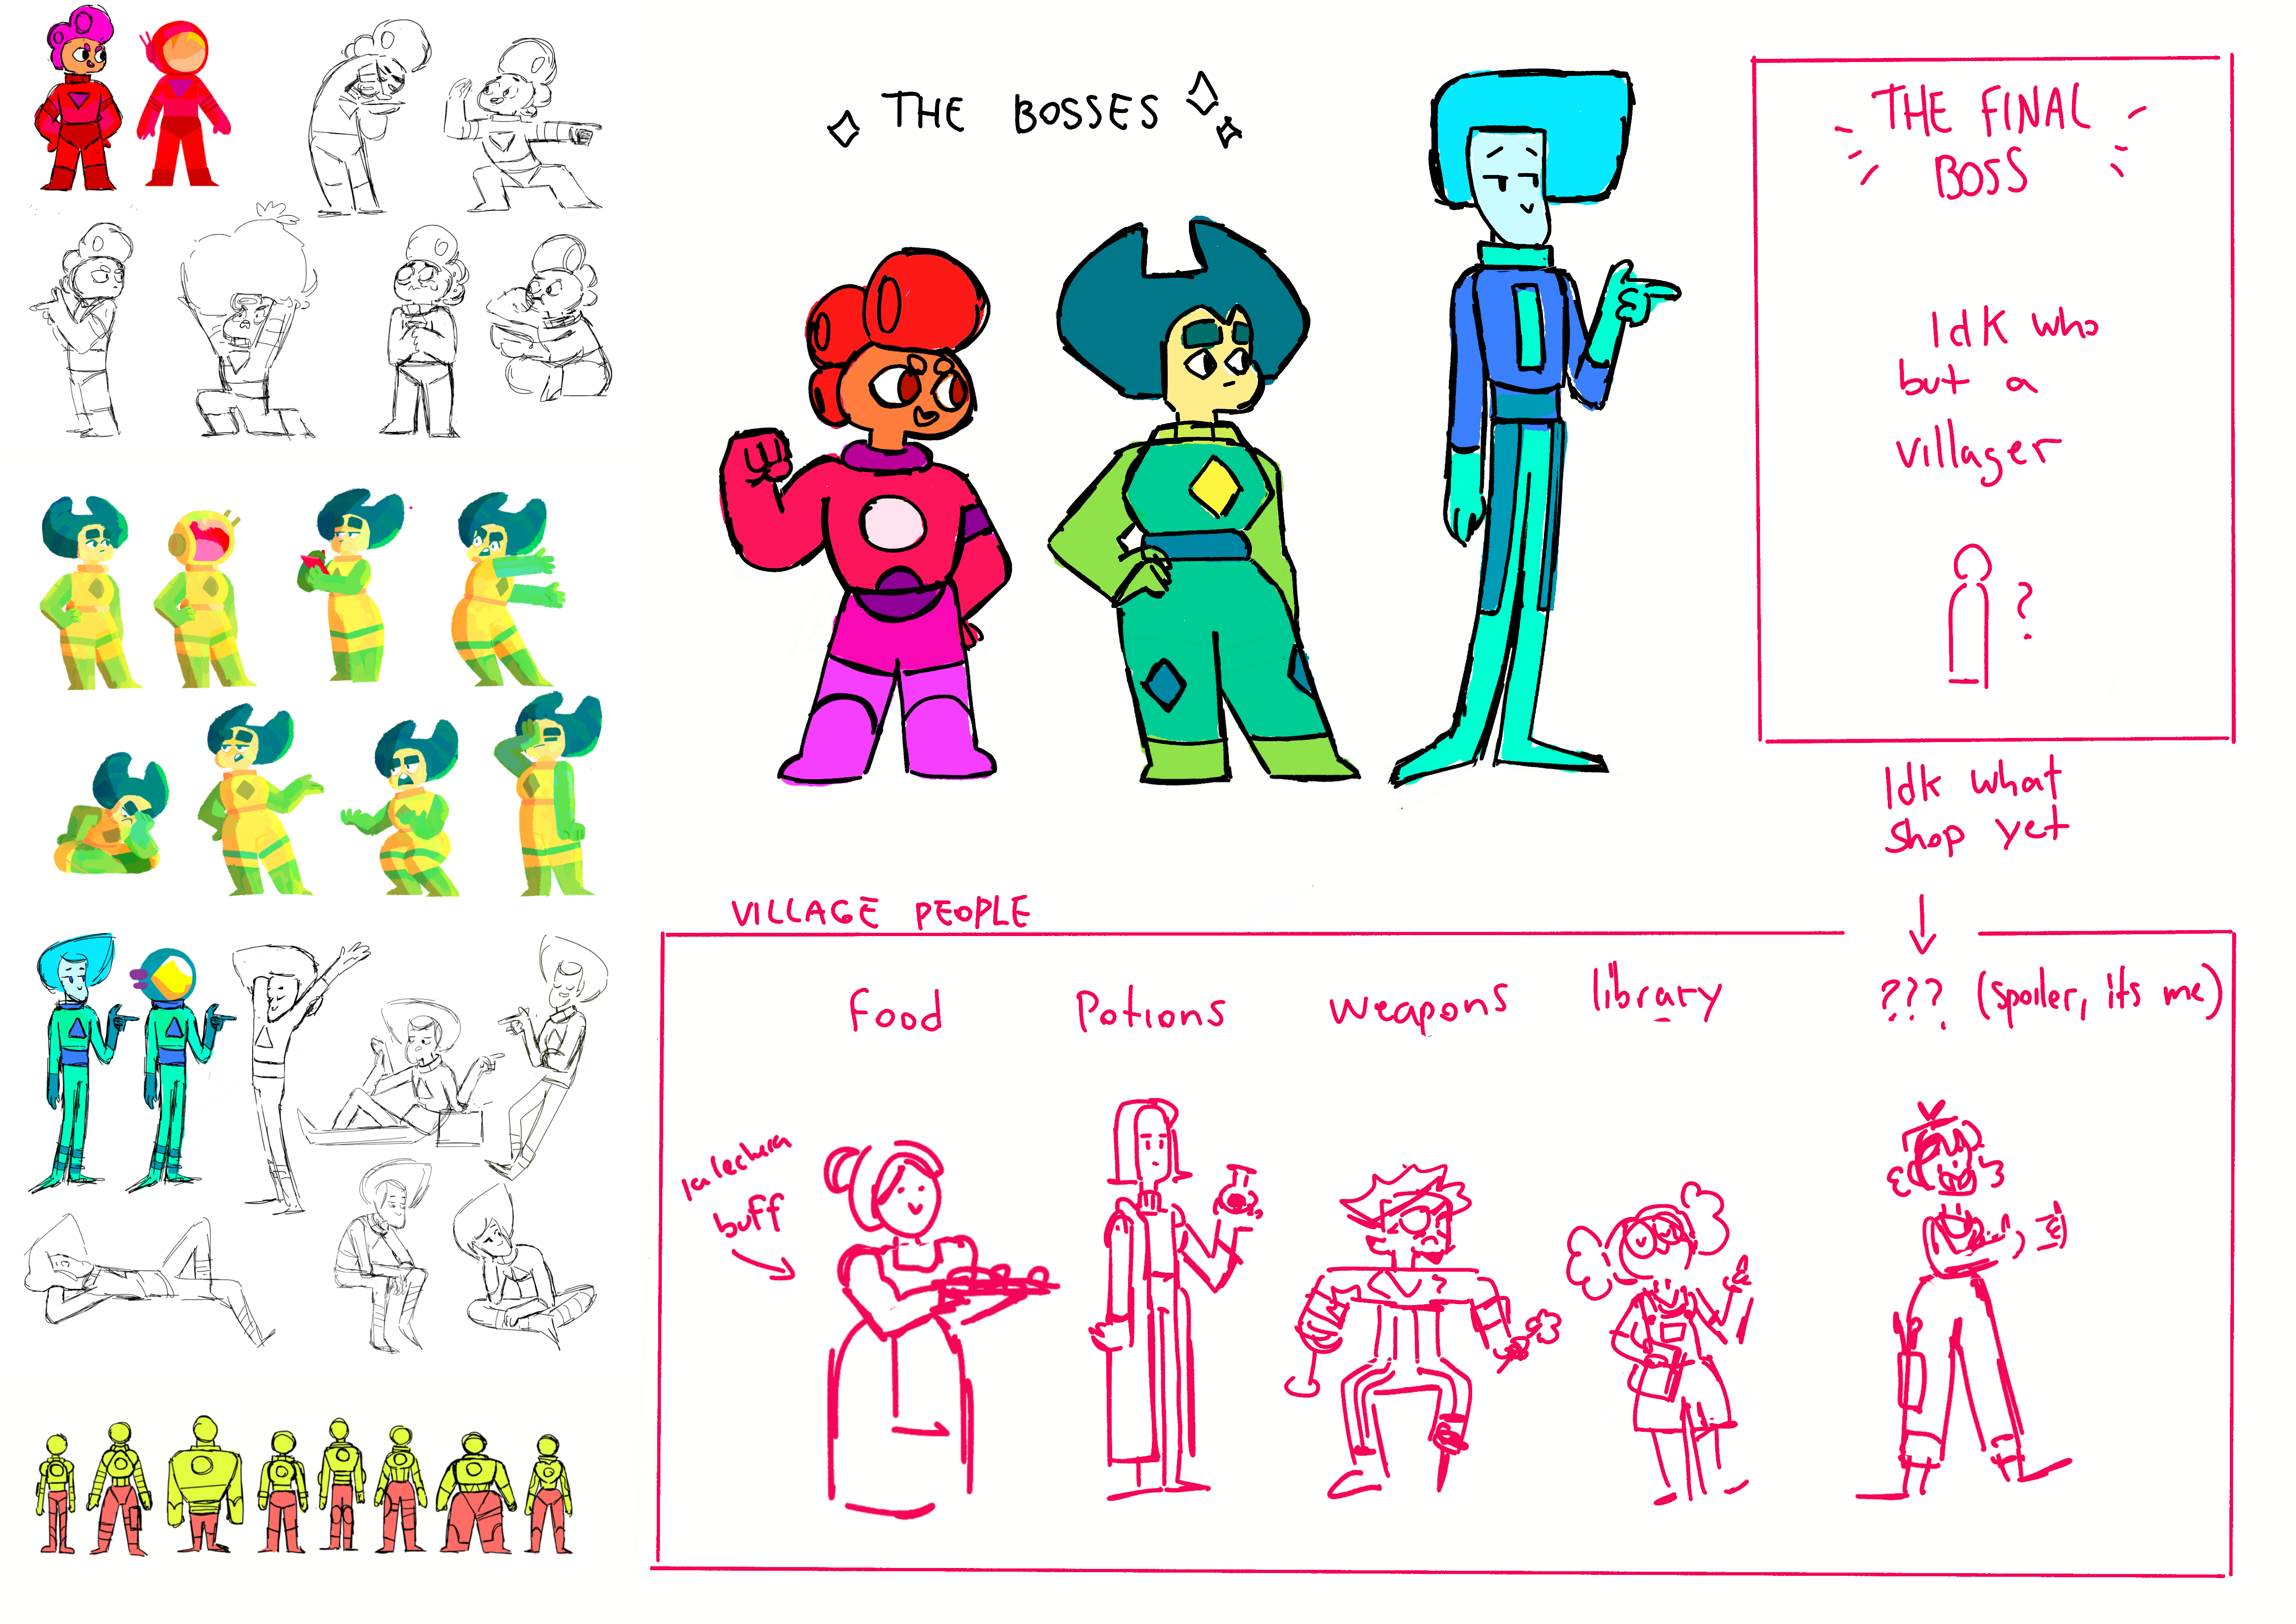 THE BOSSES
THE FINAL
BOSS
Idk who
but a
villager
?
Idk what
shop yet
VILLAGE PEOPLE
food
Potions
weapons
library
??? (spoiler, its me)
la lechera
buff